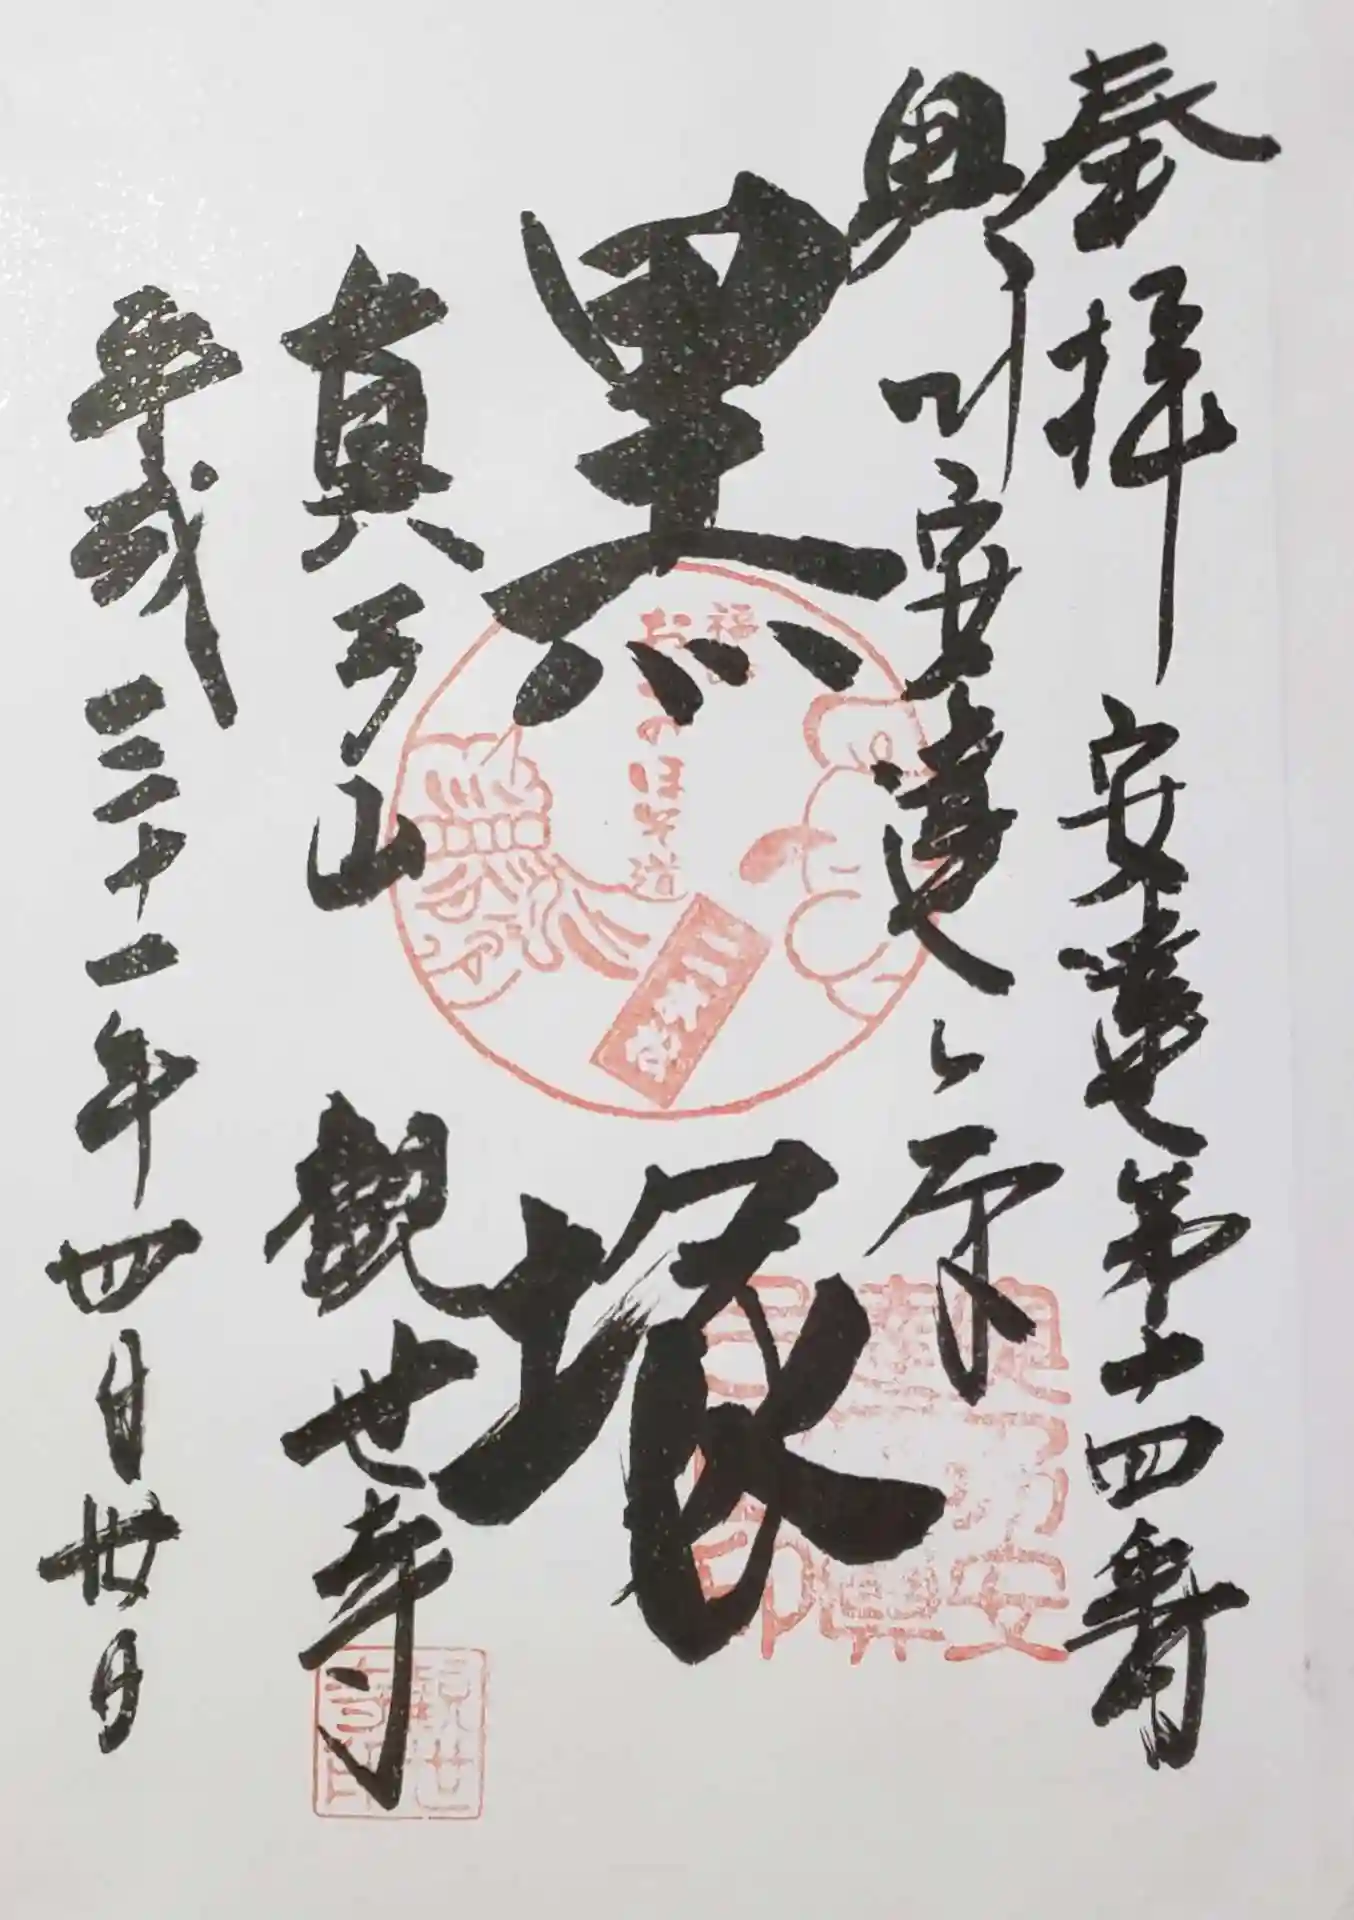 奉拝 安達第十四番
奥州安達ヶ原
黒塚
真弓山 観世寺
平成三十一年四月廿日
おくのほそ道
二本松
観世寺印